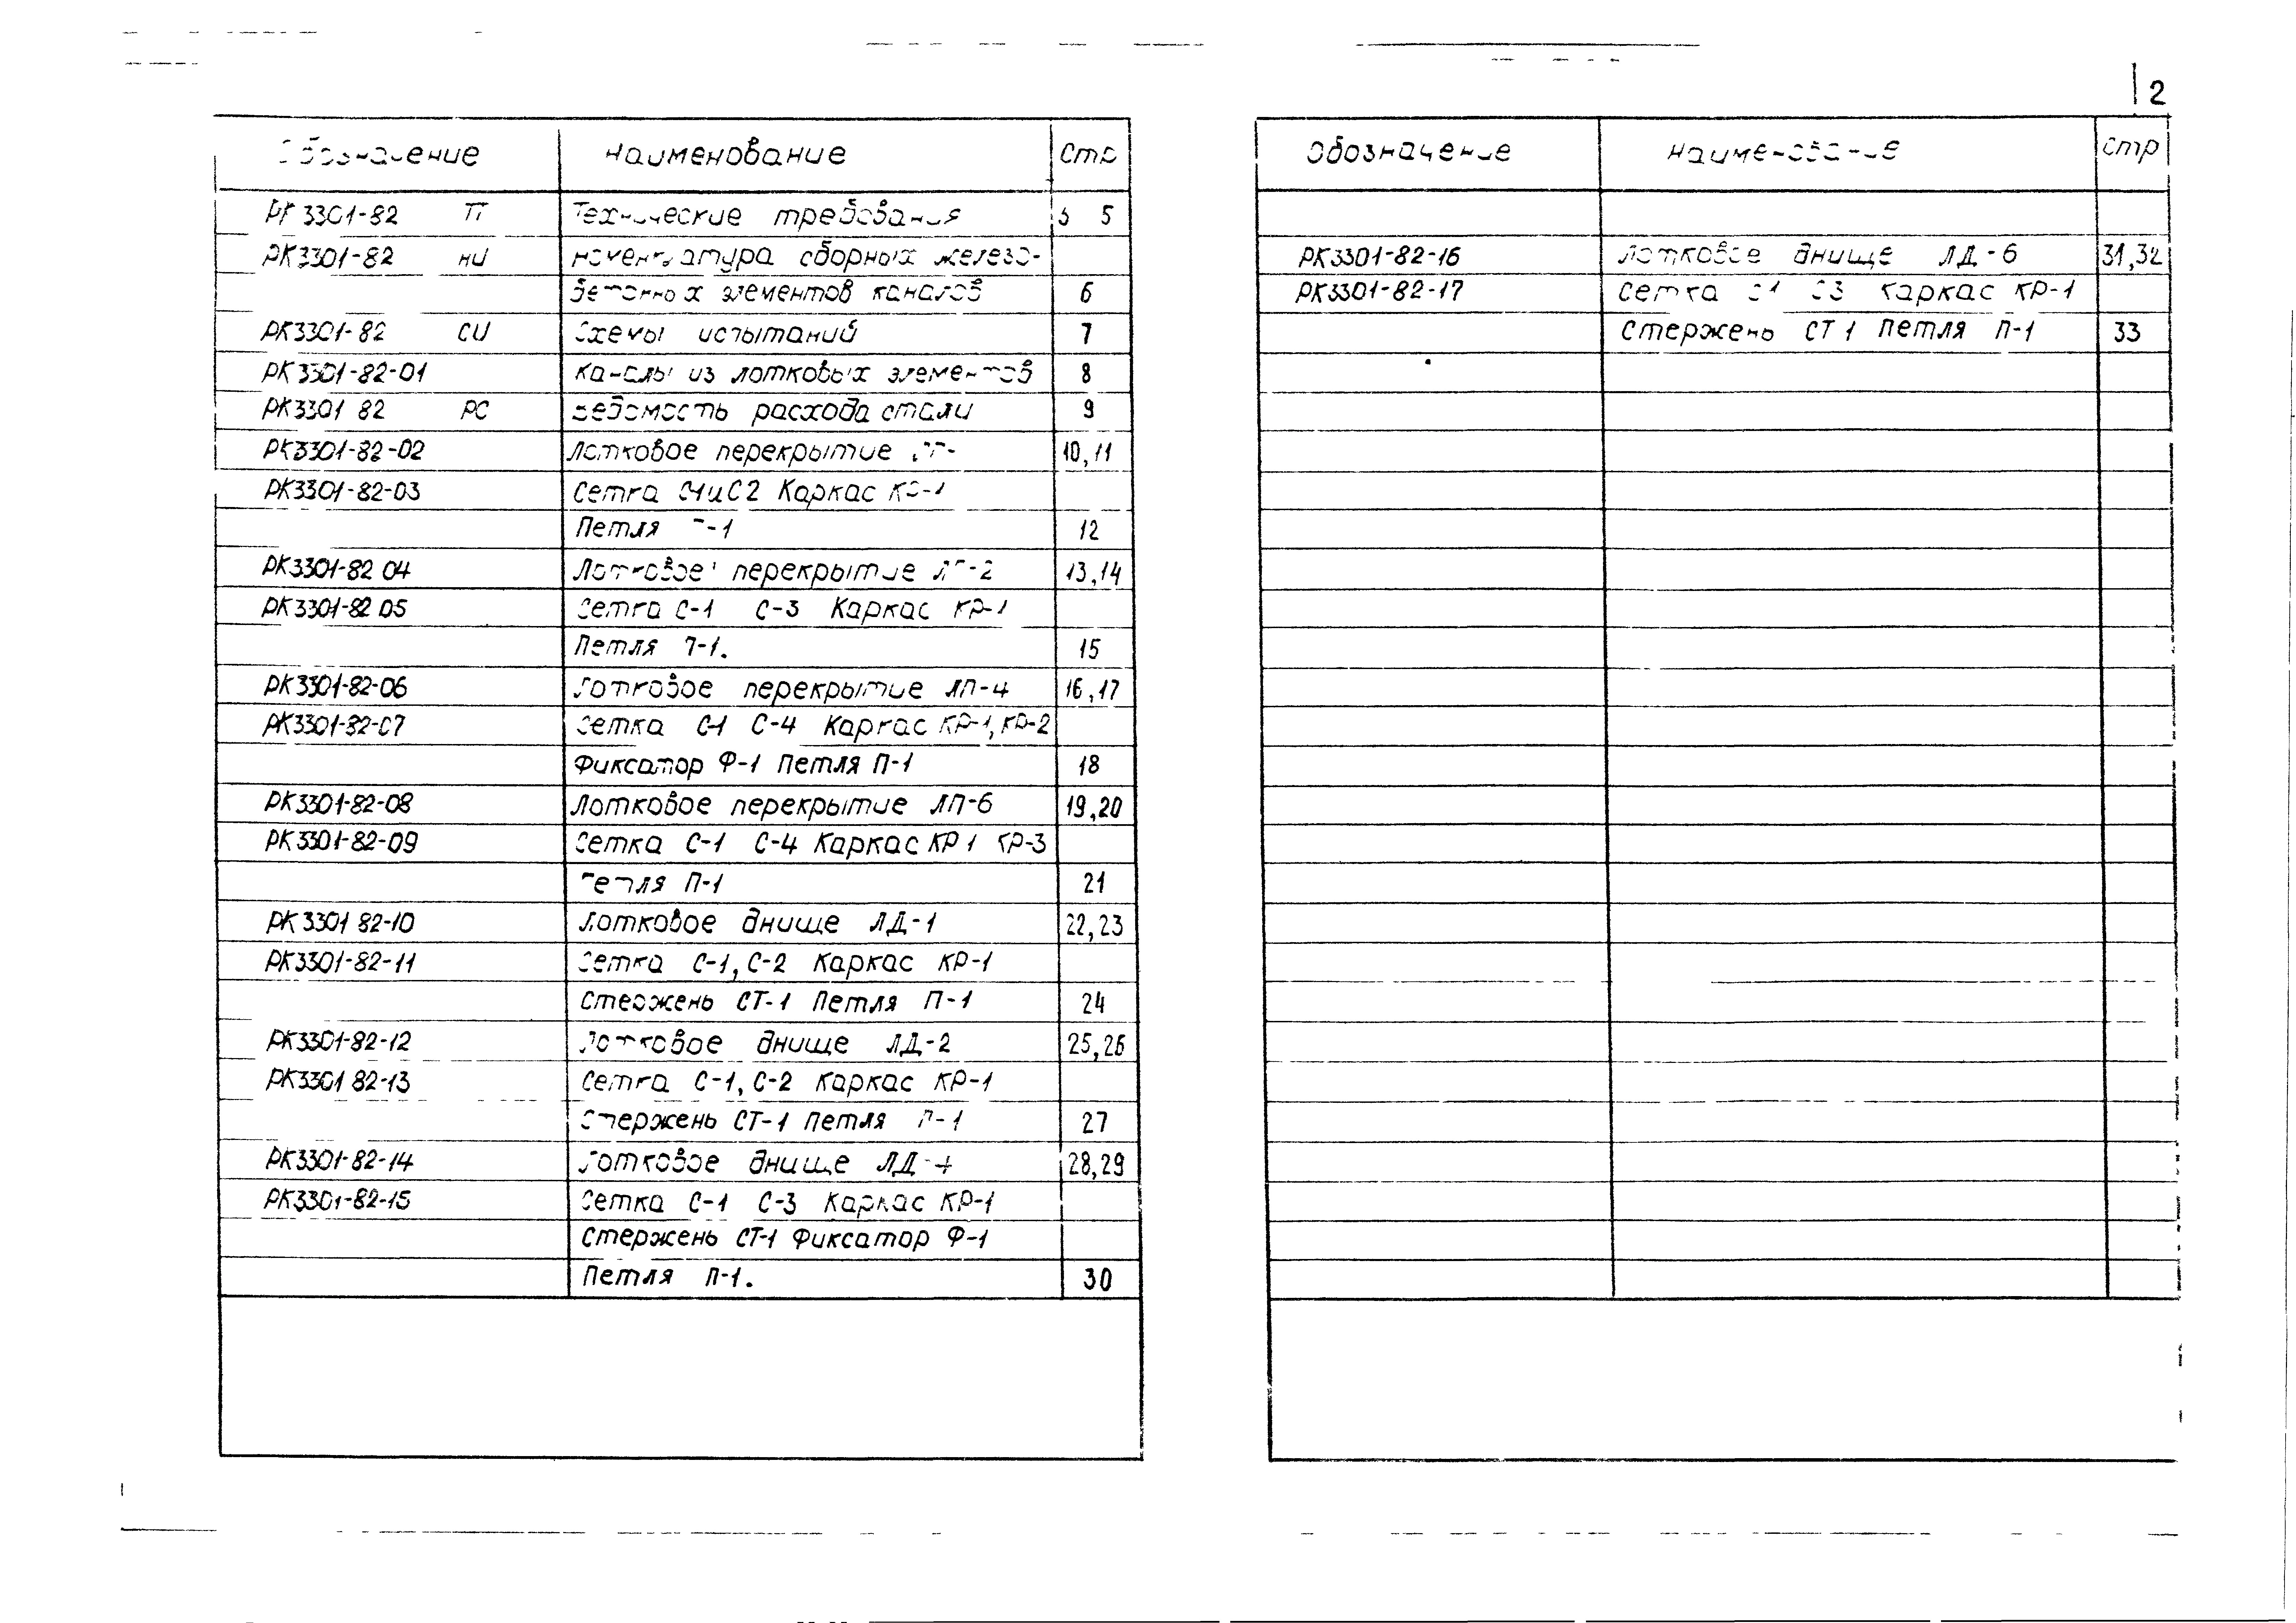 2
Обозначение Наименование Стр
РК3301-82 ТТ Технические требования 5
РК3301-82 НИ Номенклатура сборных железо-
бетонных элементов каналов 6
РК3301-82 СИ Схемы испытаний 7
РК3301-82-01 Каналы из лотковых элементов 8
РК3301 82 РС Ведомость расхода стали 9
РК3301-82-02 Лотковое перекрытие 10,11
РК3301-82-03 Сетка С1иС2 Каркас КР-1
Петля П-1 12
РК3301-82 04 Лотковое перекрытие ЛП-2 13,14
РК3301-82 05 Сетка С-1 С-3 Каркас КР-1
Петля П-1. 15
РК3301-82-06 Лотковое перекрытие ЛП-4 16,17
РК3301-82-07 Сетка С-1 С-4 Каркас КР-1, КР-2
Фиксатор Ф-1 Петля П-1 18
РК3301-82-08 Лотковое перекрытие ЛП-6 19,20
РК3301-82-09 Сетка С-1 С-4 Каркас КР 1 КР-3
Петля П-1 21
РК3301 82-10 Лотковое днище ЛД-1 22,23
РК3301-82-11 Сетка С-1, С-2 Каркас КР-1
Стержень СТ-1 Петля П-1 24
РК3301-82-12 Лотковое днище ЛД-2 25,26
РК3301 82-13 Сетка С-1, С-2 Каркас КР-1
Стержень СТ-1 Петля П-1 27
РК3301-82-14 Лотковое днище ЛД-4 28,29
РК3301-82-15 Сетка С-1 С-3 Каркас КР-1
Стержень СТ-1 Фиксатор Ф-1
Петля П-1. 30
Обозначение Наименование Стр
РК3301-82-16 Лотковое днище ЛД-6 31,32
РК3301-82-17 Сетка С1 С3 Каркас КР-1
Стержень СТ 1 Петля П-1 33